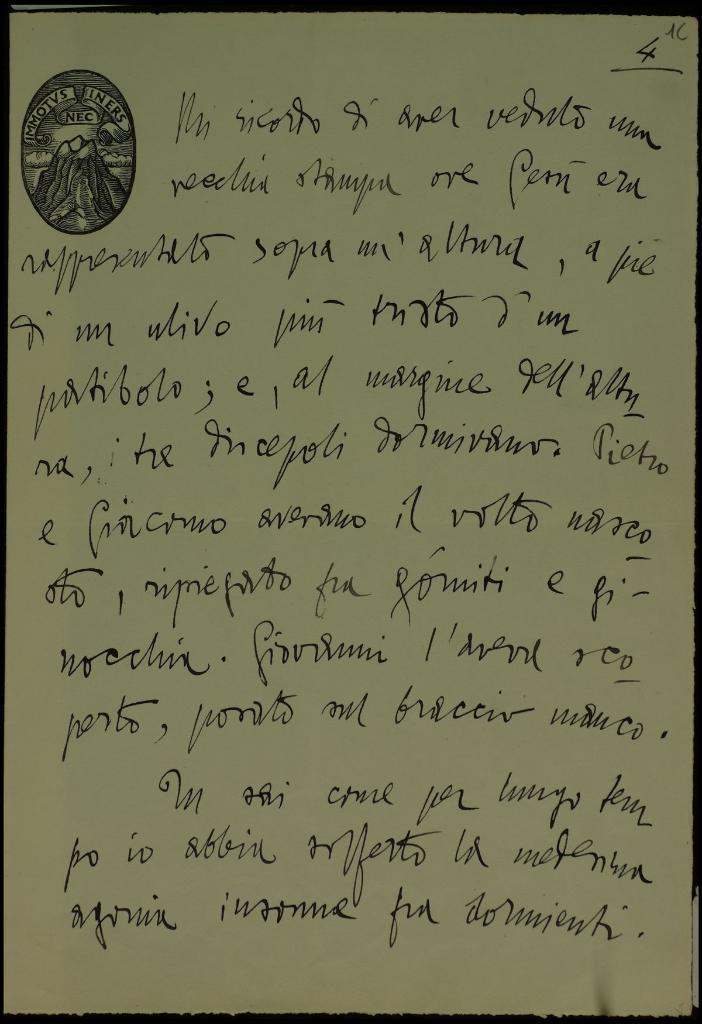 1C
4
IMMOTVS NEC INERS
Mi ricordo di aver veduto una
vecchia stampa ove Gesù era
rappresentato sopra un'altura, a piè
di un ulivo più tristo d'un
patibolo; e, al margine dell'altu
ra, i tre discepoli dormivano. Pietro
e Giacomo avevano il volto nasco
sto, ripiegato fra gómiti e gi-
nocchia. Giovanni l'aveva sco
perto, posato sul braccio manco.
Tu sai come per lungo tem
po io abbia sofferto la medesima
agonia insonne fra dormienti.